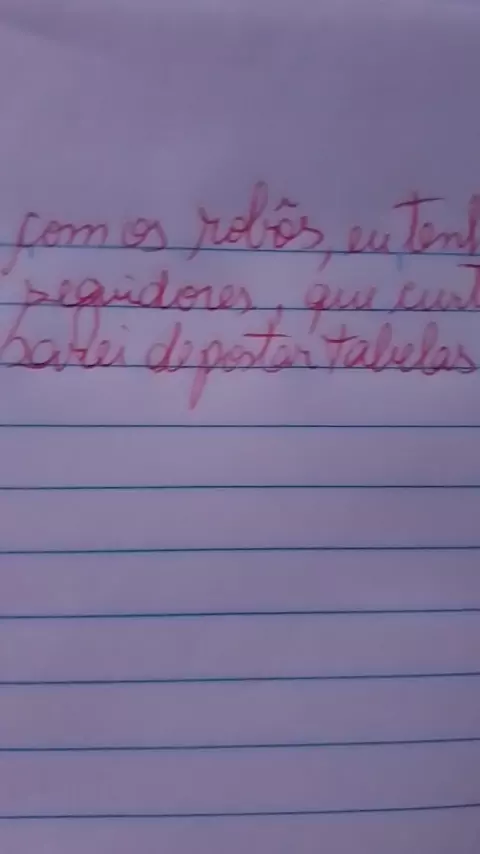 com os robôs, eu tenh
seguidores, que curt
barei de postar tabelas